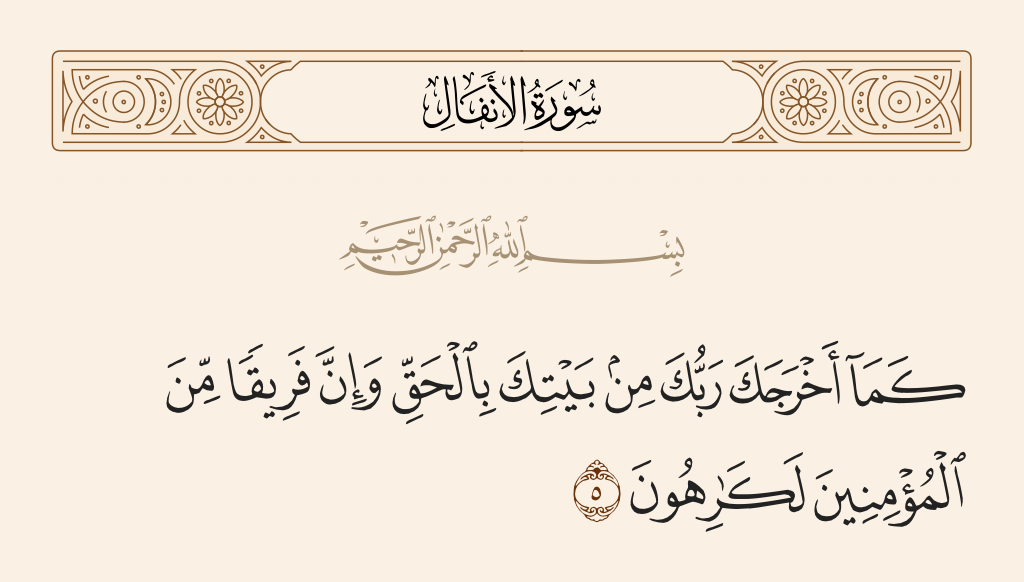 سُورَةُ الأَنفَالِ
بِسْمِ ٱللَّهِ ٱلرَّحْمَٰنِ ٱلرَّحِيمِ
كَمَآ أَخْرَجَكَ رَبُّكَ مِنۢ بَيْتِكَ بِٱلْحَقِّ وَإِنَّ فَرِيقًا مِّنَ
ٱلْمُؤْمِنِينَ لَكَـٰرِهُونَ ٥